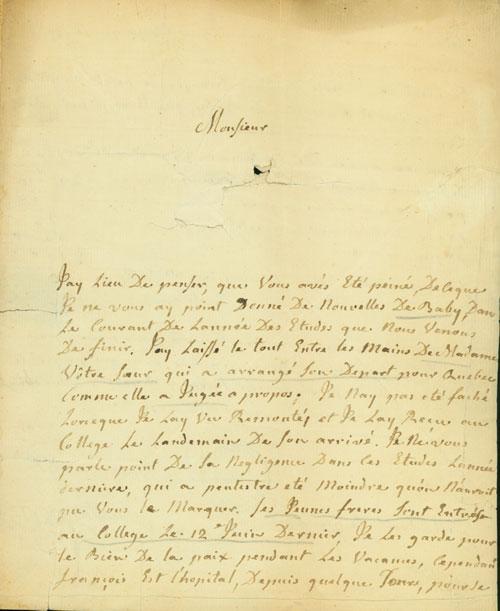 Monsieur
J'ay Lieu De penser, que Vous avés Eté peiné, De ceque
Je ne vous ay point Donné De Nouvelles De Baby Dan
Le Courant De L'année Des Etudes que Nous Venons
De finir. J'ay Laissé le tout Entre les Mains De Madame
Vôtre Sœur qui a arrangé son Depart pour Quebec
Comme elle a Jugée a propos. Je N'ay pas eté faché
Lorceque Je L'ay Veu Remontés et Je L'ay Reçu au
College Le Landemain De Son arrivé. Je Ne vous
parle point De Sa Negligence Dans Les Etudes L'année
derniere, qui a peutestre eté Moindre qu'on N'auroit
pu Vous le Marquer. Ses Jeunes freres Sont Entrés
au College Le 12e Juin Dernier, Je Les garde pour
le Bien De la paix pendant Les Vacances, Cependan
françois Est L'hopital, Depuis quelque Jours, pour se